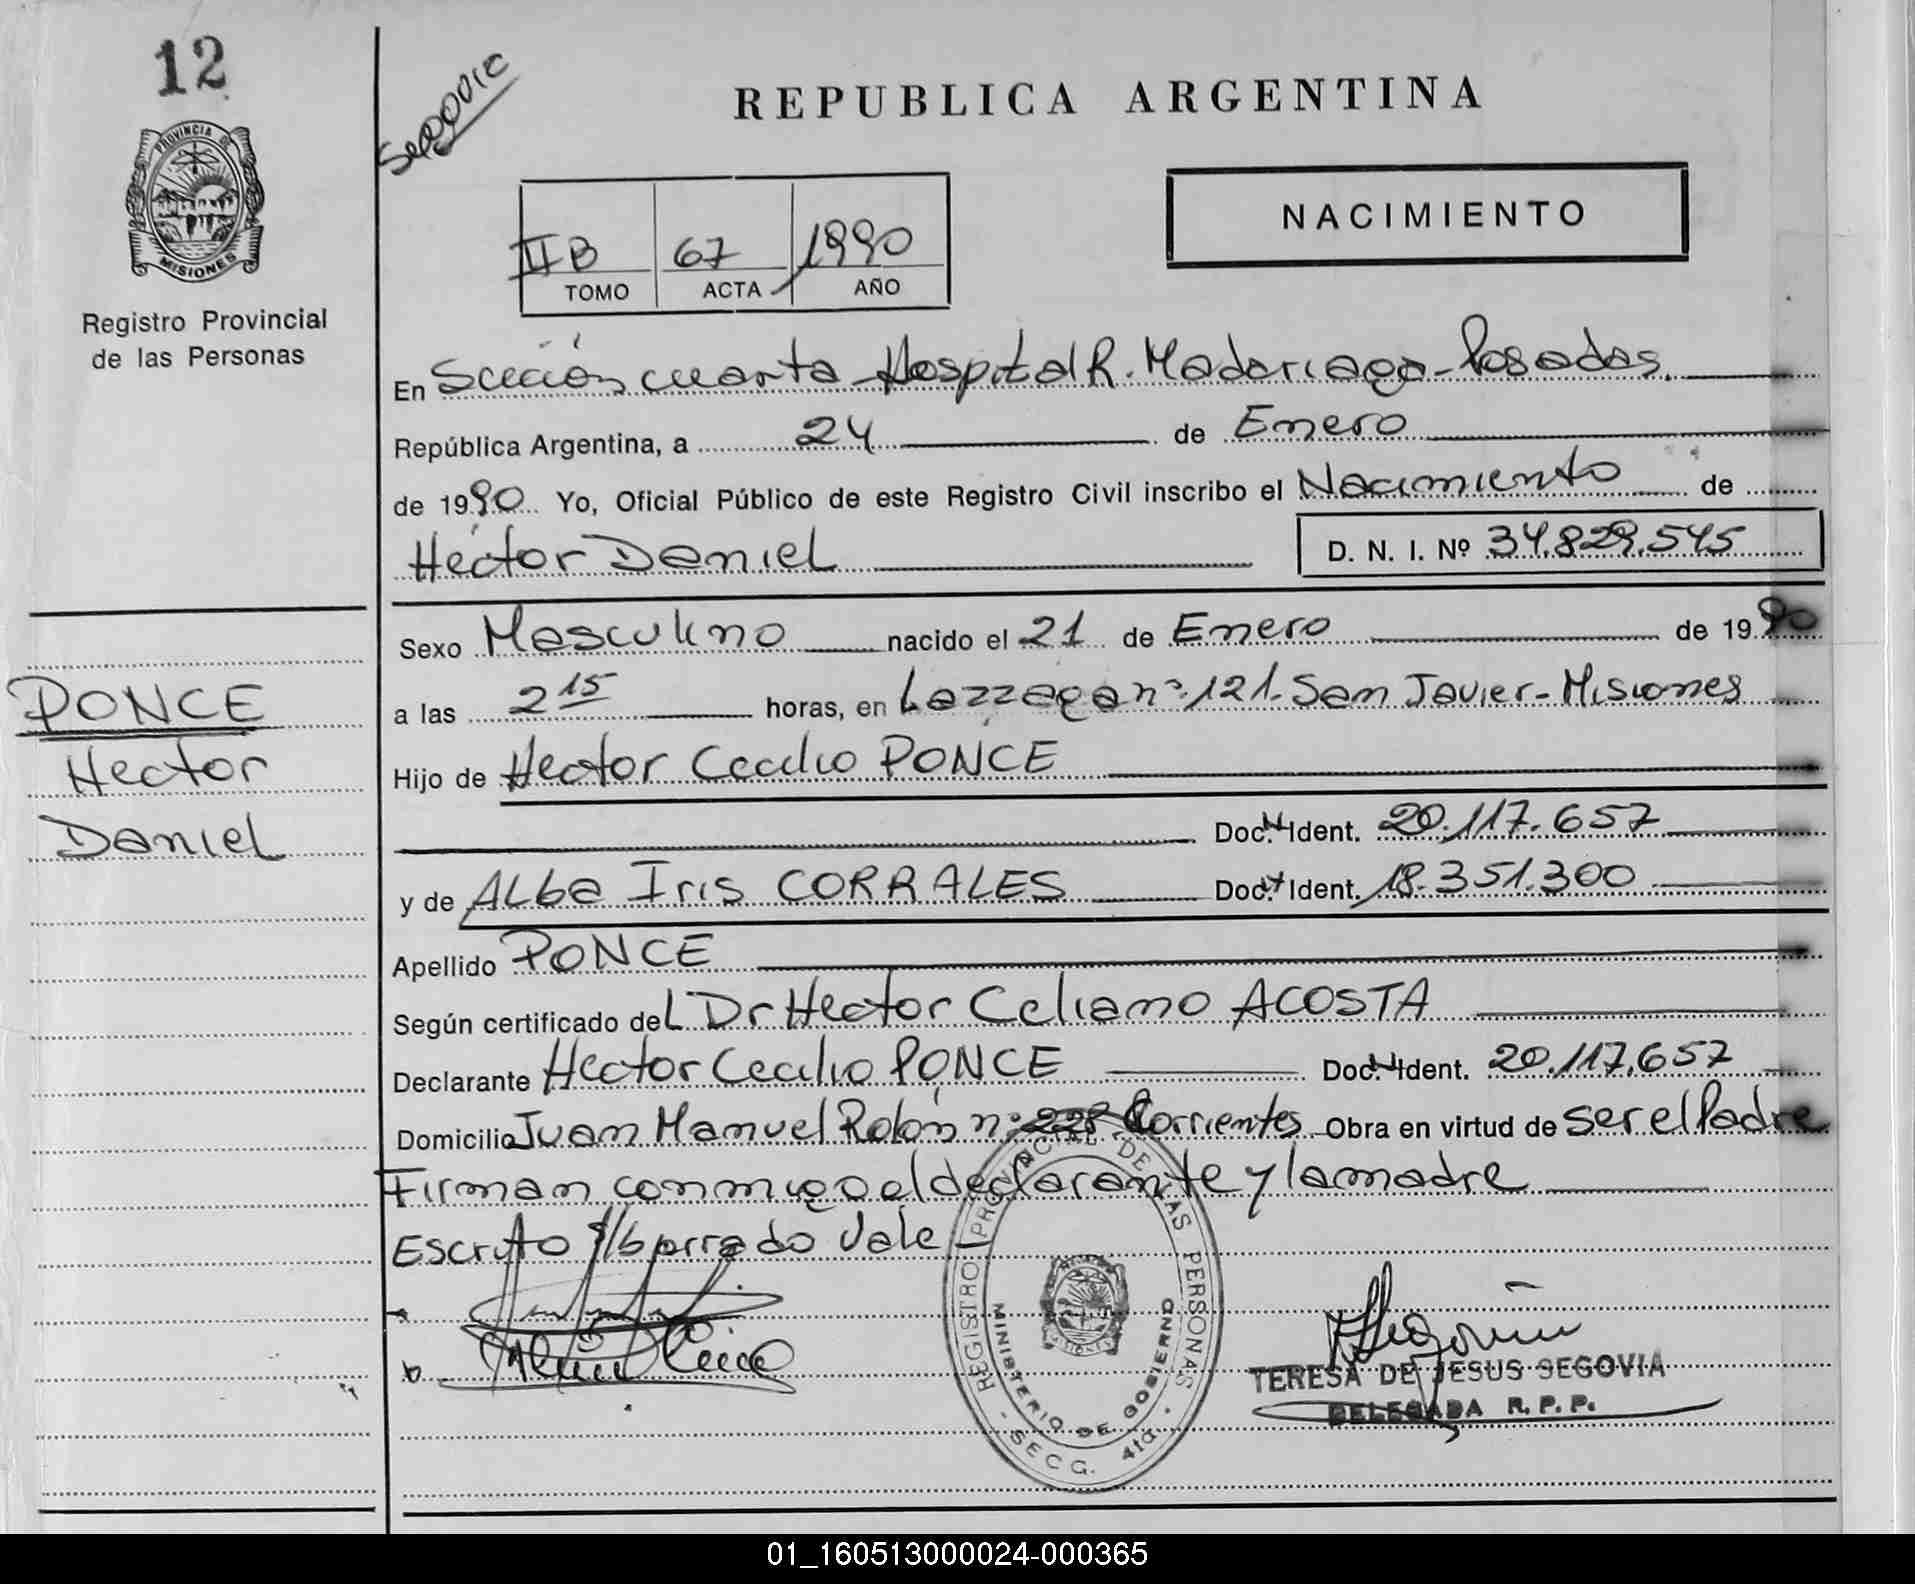 12
PROVINCIA DE
MISIONES
Registro Provincial
de las Personas
PONCE
Hector
Daniel
REPUBLICA ARGENTINA
II B 67 1990
TOMO ACTA AÑO
NACIMIENTO
En Sección cuarta Hospital R. Madariaga - Posadas.
República Argentina, a 24 de Enero
de 1990 Yo, Oficial Público de este Registro Civil inscribo el Nacimiento de
Héctor Daniel D. N. I. Nº 34.829.545
Sexo Masculino nacido el 21 de Enero de 1990
a las 2 15 horas, en Lazzaga nº 121. San Javier - Misiones
Hijo de Hector Cecilio PONCE
Doc. N. Ident. 20.117.657
y de ALba Iris CORRALES Doc. Ident. 18.351.300
Apellido PONCE
Según certificado deL Dr Hector Celiano ACOSTA
Declarante Hector Cecilio PONCE Doc. N. Ident. 20.117.657
Domicilio Juan Manuel Rolón nº 228 Corrientes Obra en virtud de ser el Padre
Firman conmigo el declarante y la madre
Escrito s/borrado Vale
REGISTRO PROVINCIAL DE LAS PERSONAS
MINISTERIO DE GOBIERNO
- SECC. 4ta. -
TERESA DE JESUS SEGOVIA
DELEGADA R. P. P.
01_160513000024-000365